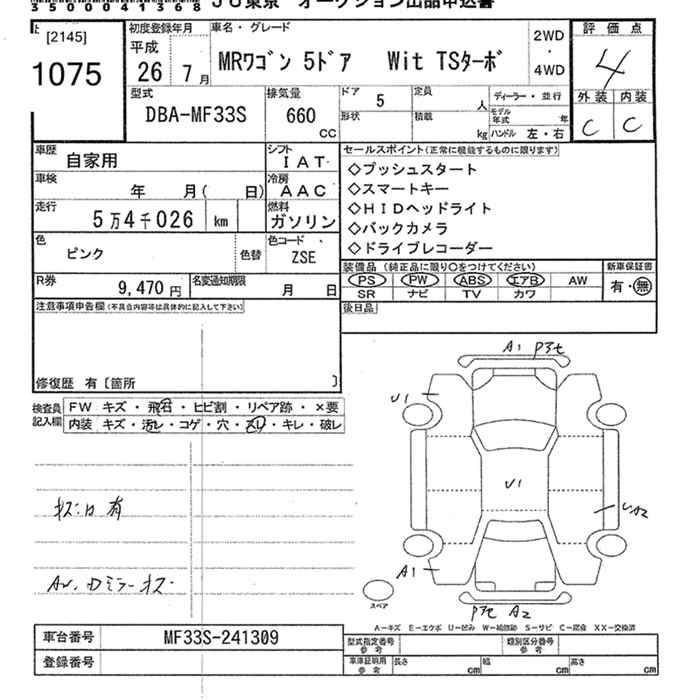 3500041368 JU東京 オークション出品申込書
[2145]
1075
初度登録年月
平成
26年 7月
車名・グレード
MRワゴン 5ドア Wit TSターボ
2WD
・
4WD
評価点
4
外装 内装
C C
型式
DBA-MF33S
排気量
660
CC
ドア
5
形状
定員
人
積載
kg
ディーラー・並行
モデル年式 年
ハンドル 左・右
車歴
自家用
シフト
IAT
車検
年 月( 日)
冷房
AAC
走行
5万4千026 km
燃料
ガソリン
色
ピンク
色替
色コード
ZSE
R券
9,470円
名変通知期限
月 日
セールスポイント(正常に機能するものに限ります)
◇プッシュスタート
◇スマートキー
◇HIDヘッドライト
◇バックカメラ
◇ドライブレコーダー
装備品(純正品に限り○をつけてください)
新車保証書
PS PW ABS エアB AW
SR ナビ TV カワ
有・無
後日品
注意事項申告欄(不具合内容等は具体的に記入して下さい)
修復歴 有[箇所 ]
検査員記入欄
FW キズ・飛石・ヒビ割・リペア跡・×要
内装 キズ・汚レ・コゲ・穴・スレ・キレ・破レ
A1
U1
U1
UA2
A1
A2
スペア
A-キズ E-エクボ U-凹み W-補修跡 S-サビ C-腐食 XX-交換済
車台番号
MF33S-241309
登録番号
型式指定番号
参考
類別区分番号
参考
車庫証明用
参考
長さ cm
幅 cm
高さ cm